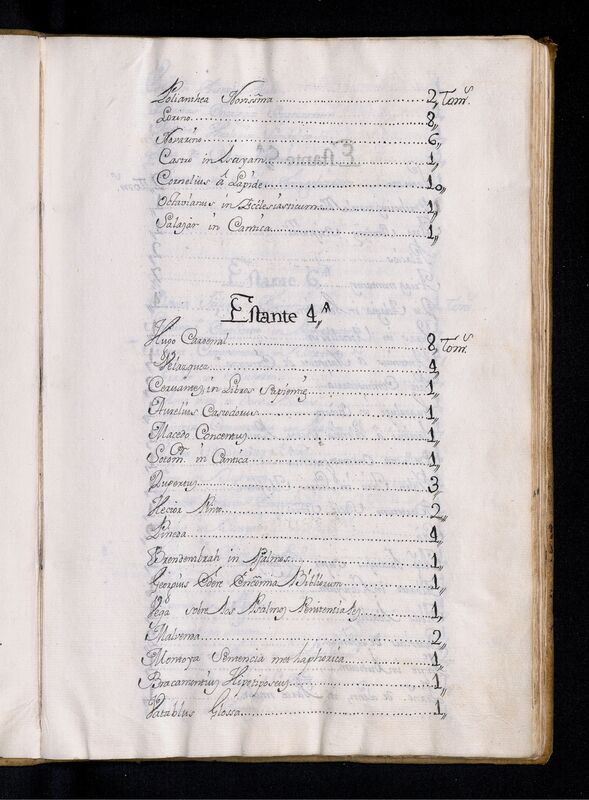 Polianthea Novisima 2,, Toms.
Lorino 8,,
Novarino 6,,
Castro in Isayam 1,,
Cornelius â Lapide 10,,
Octavianus in Ecclesiasticum 1,,
Salazar in Cantica 1,,
Estante 4,,A
Hugo Cardenal 8,, Toms.
Velazquez 4,,
Cervantez in Libros Sapientiæ 1,,
Aurelius Casiodorus 1,,
Macedo Concentus 1,,
Sotom. in Cantica 1,,
3,,
Hector Pinto 2,,
Pineda 4,,
in Psalmos 1,,
Georgius Edere Bibliorum 1,,
Vega sobre los Psalmos Penitenciales 1,,
Malvenda 2,,
Montoya Sentencia methaphorica 1,,
Bracamontius 1,,
Vatablus Glossa 1,,